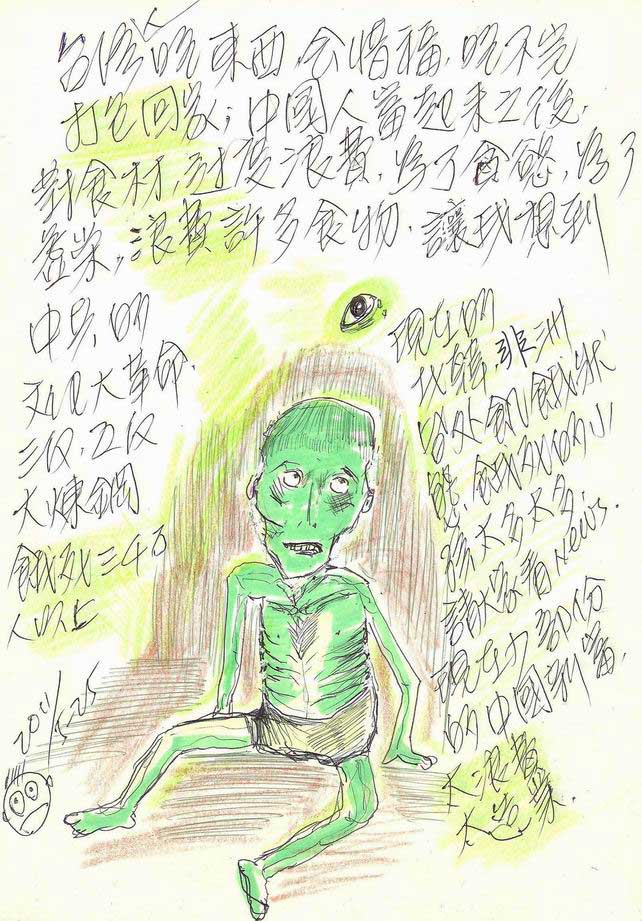 台灣吃東西,会惜福,吃不完
打包回家;中國人富起來之後,
對食材,过度浪費,為了食慾,為了
虛榮,浪費許多食物,讓我想到
中共的
文化大革命,
三反,五反
大煉鋼
餓死三4万
人以上
2011/5.25
現在的
非洲
餓死的小
孩太多太多.
請大家看News.
現在大部份
的中國新富,
太浪費
太造業.